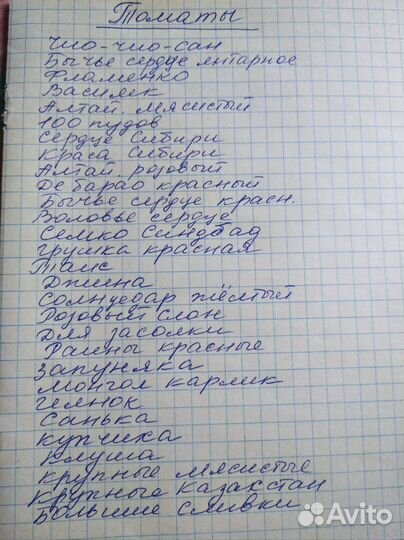 Томаты
Чио-чио-сан
Бычье сердце янтарное
Фламенко
Василек
Алтай. мясистый
100 пудов
Сердце Сибири
Краса Сибири
Алтай. розовый
Де барао красный
Бычье сердце красн.
Воловье сердце
Семко Синдбад
Грушка красная
Таис
Джина
Солнцедар жёлтый
Розовый слон
Для засолки
красные
Монгол карлик
Гилнок
Санька
Купчиха
Клуша
Крупные мясистые
Крупные Казахстан
Большие сливки
Avito